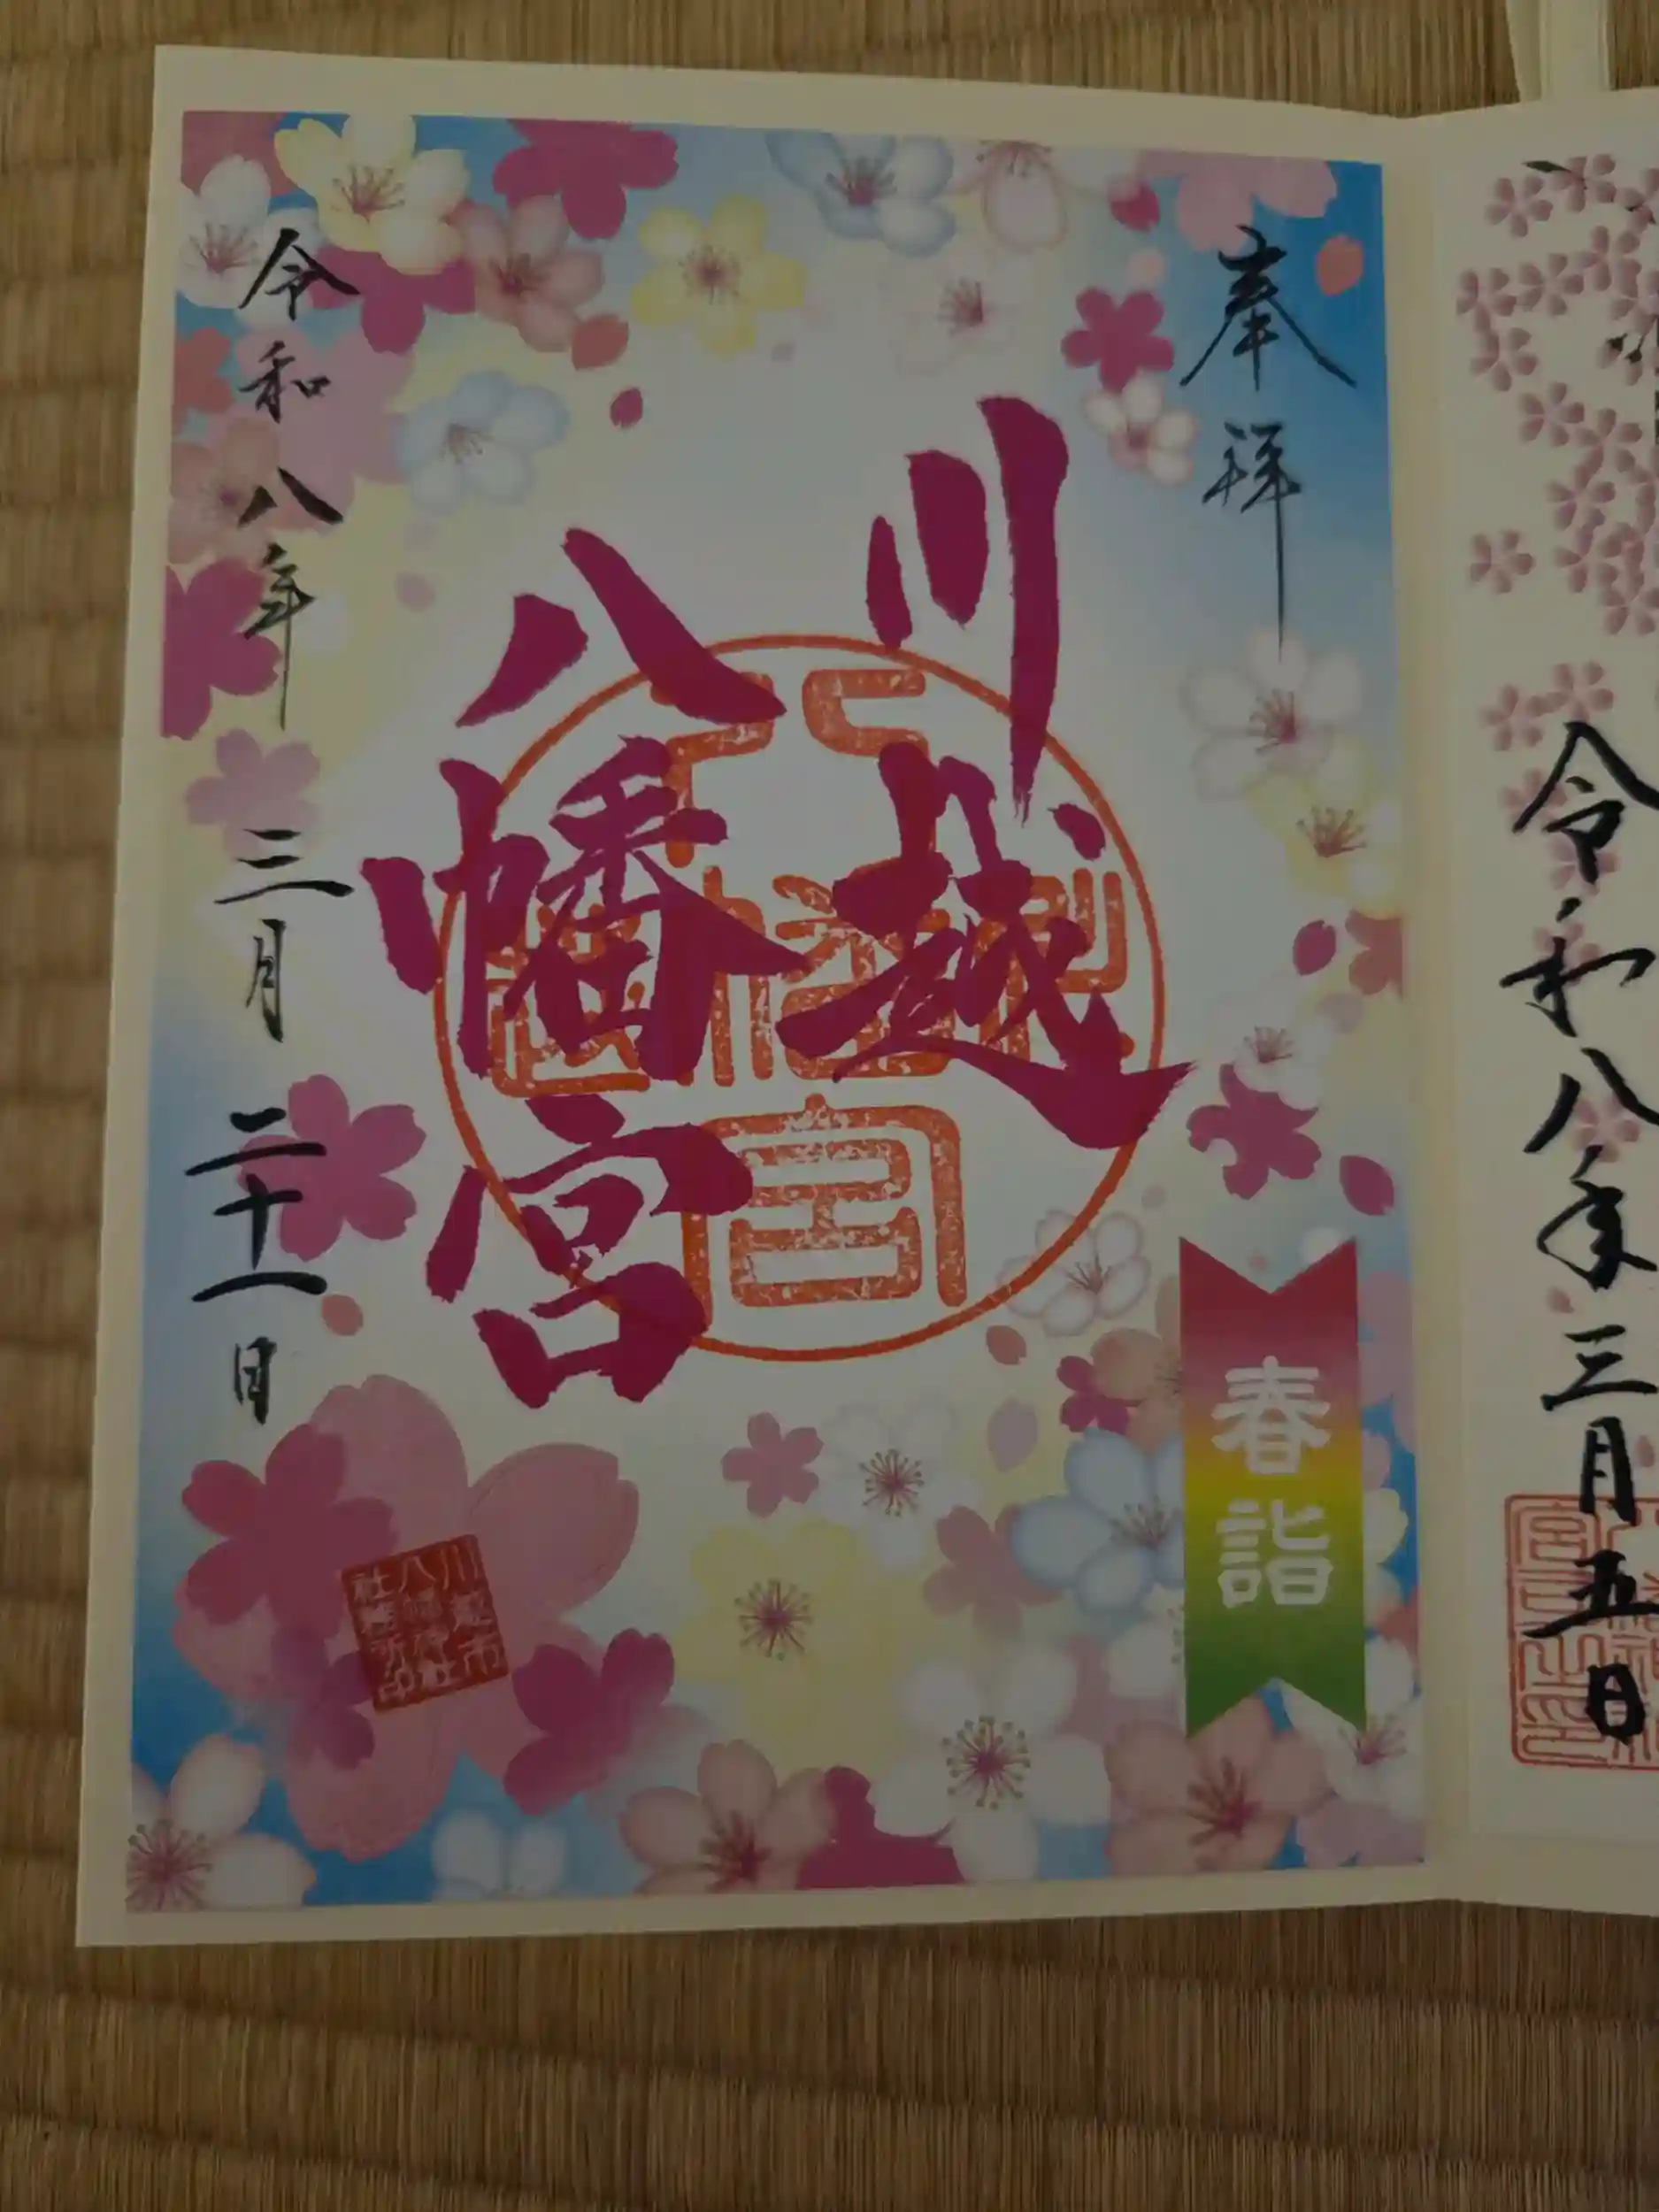 奉拝
川越
八幡宮
令和八年 三月 二十一日
春詣
川越市
八幡神社
社務所印
令和八年三月五日